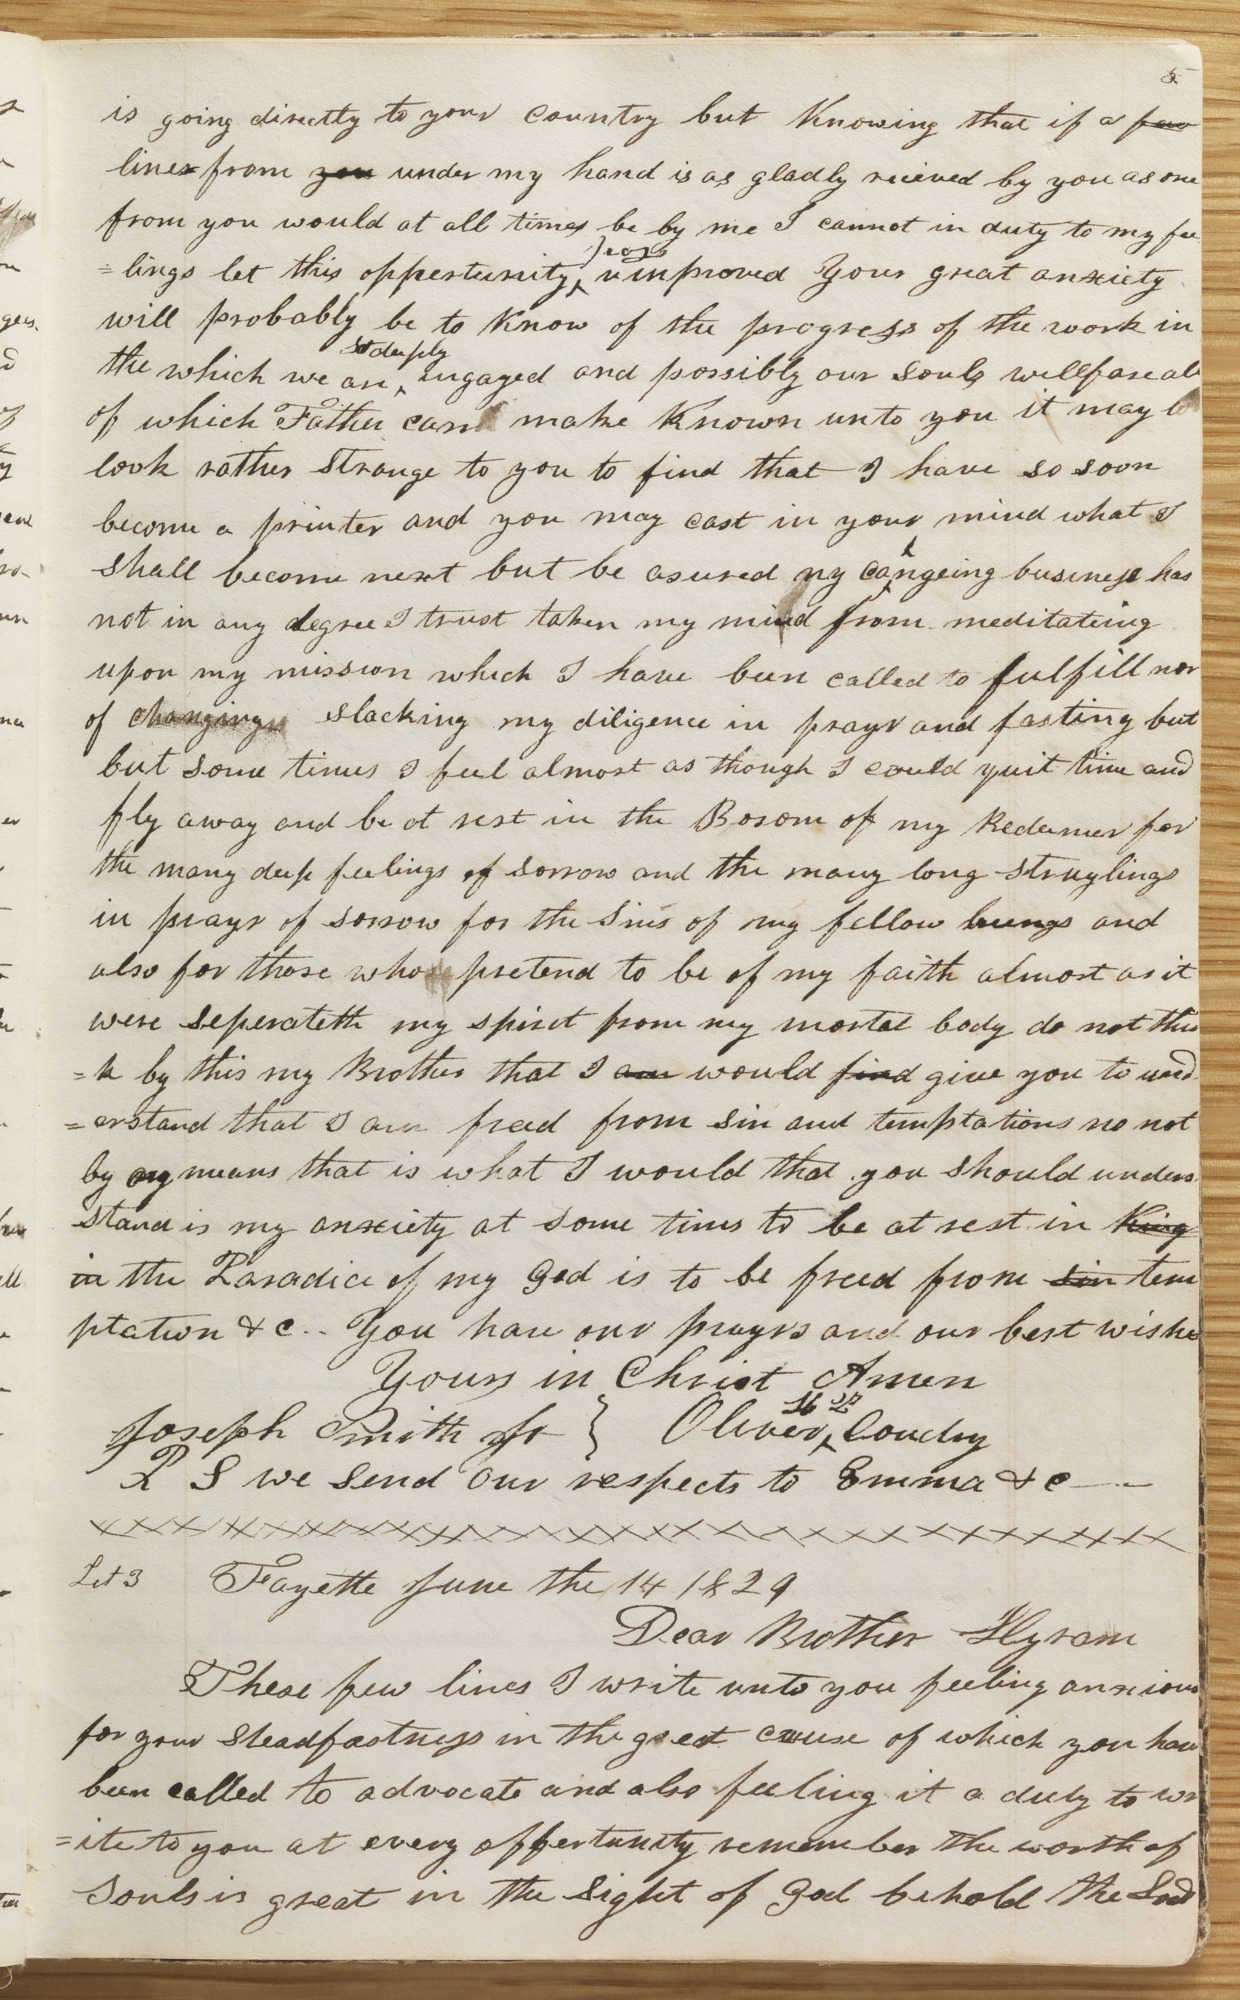 5
is going directly to your Country but Knowing that if a few
lines from you under my hand is as gladly recieved by you as one
from you would at all times be by me I cannot in duty to my fee
=lings let this oppertunity, pass unimproved Your great anxiety
will probably be to Know of the progress of the work in
the which we are so deeply engaged and possibly our souls wellfare al
of which Father can make Known unto you it may b
look rather Strange to you to find that I have so soon
become a printer and you may cast in your mind what I
shall become next but be asured my changeing business has
not in any degree I trust taken my mind from meditateing
upon my mission which I have been called to fulfill nor
of changing slacking my diligence in prayr and fasting but
but some times I feel almost as though I could quit time and
fly away and be at rest in the Bosom of my Redeemer for
the many deep feelings of sorrow and the many long struglings
in prayr of sorrow for the Sins of my fellow beings and
also for those who pretend to be of my faith almost as it
were seperateth my spirit from my mortal body do not thin
=k by this my Brother that I am would find give you to und
=erstand that I am freed from sin and temptations no not
by any means that is what I would that you should unders
stand is my anxiety at some times to be at rest in King
in the Paradice of my God is to be freed from sin tem
ptation & c.. You have our prayrs and our best wishes
Yours in Christ Amen
Joseph Smith Jr } Oliver H P Cowdry
P S we send our respects to Emma & c —
Let 3 Fayette June the 14 1829
Dear Brother Hyram
These few lines I write unto you feeling anxious
for your steadfastness in the great cause of which you have
been called to advocate and also feeling it a duty to wr
=ite to you at every oppertunity remember the worth of
souls is great in the sight of God behold the Lord